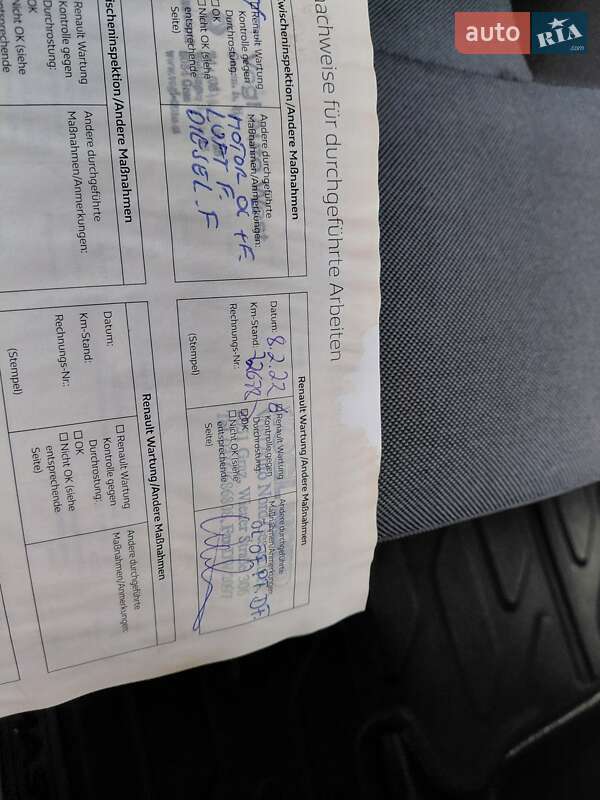 auto RIA .com
nachweise für durchgeführte Arbeiten
wischeninspektion/Andere Maßnahmen
Renault Wartung
Kontrolle gegen
Durchrostung:
OK
Nicht OK (siehe
entsprechende
Seite)
Andere durchgeführte
Maßnahmen/Anmerkungen:
MOTOR ÖL + F.
LUFT F.
DIESEL. F
Renault Wartung/Andere Maßnahmen
Datum: 8.2.22
Km-Stand:
Rechnungs-Nr.:
(Stempel)
Renault Wartung
Kontrolle gegen
Durchrostung:
OK
Nicht OK (siehe
entsprechende
Seite)
Andere durchgeführte
Maßnahmen/Anmerkungen:
wischeninspektion/Andere Maßnahmen
Renault Wartung
Kontrolle gegen
Durchrostung:
OK
Nicht OK (siehe
entsprechende
Andere durchgeführte
Maßnahmen/Anmerkungen:
Renault Wartung/Andere Maßnahmen
Datum:
Km-Stand:
Rechnungs-Nr.:
(Stempel)
Renault Wartung
Kontrolle gegen
Durchrostung:
OK
Nicht OK (siehe
entsprechende
Seite)
Andere durchgeführte
Maßnahmen/Anmerkungen: